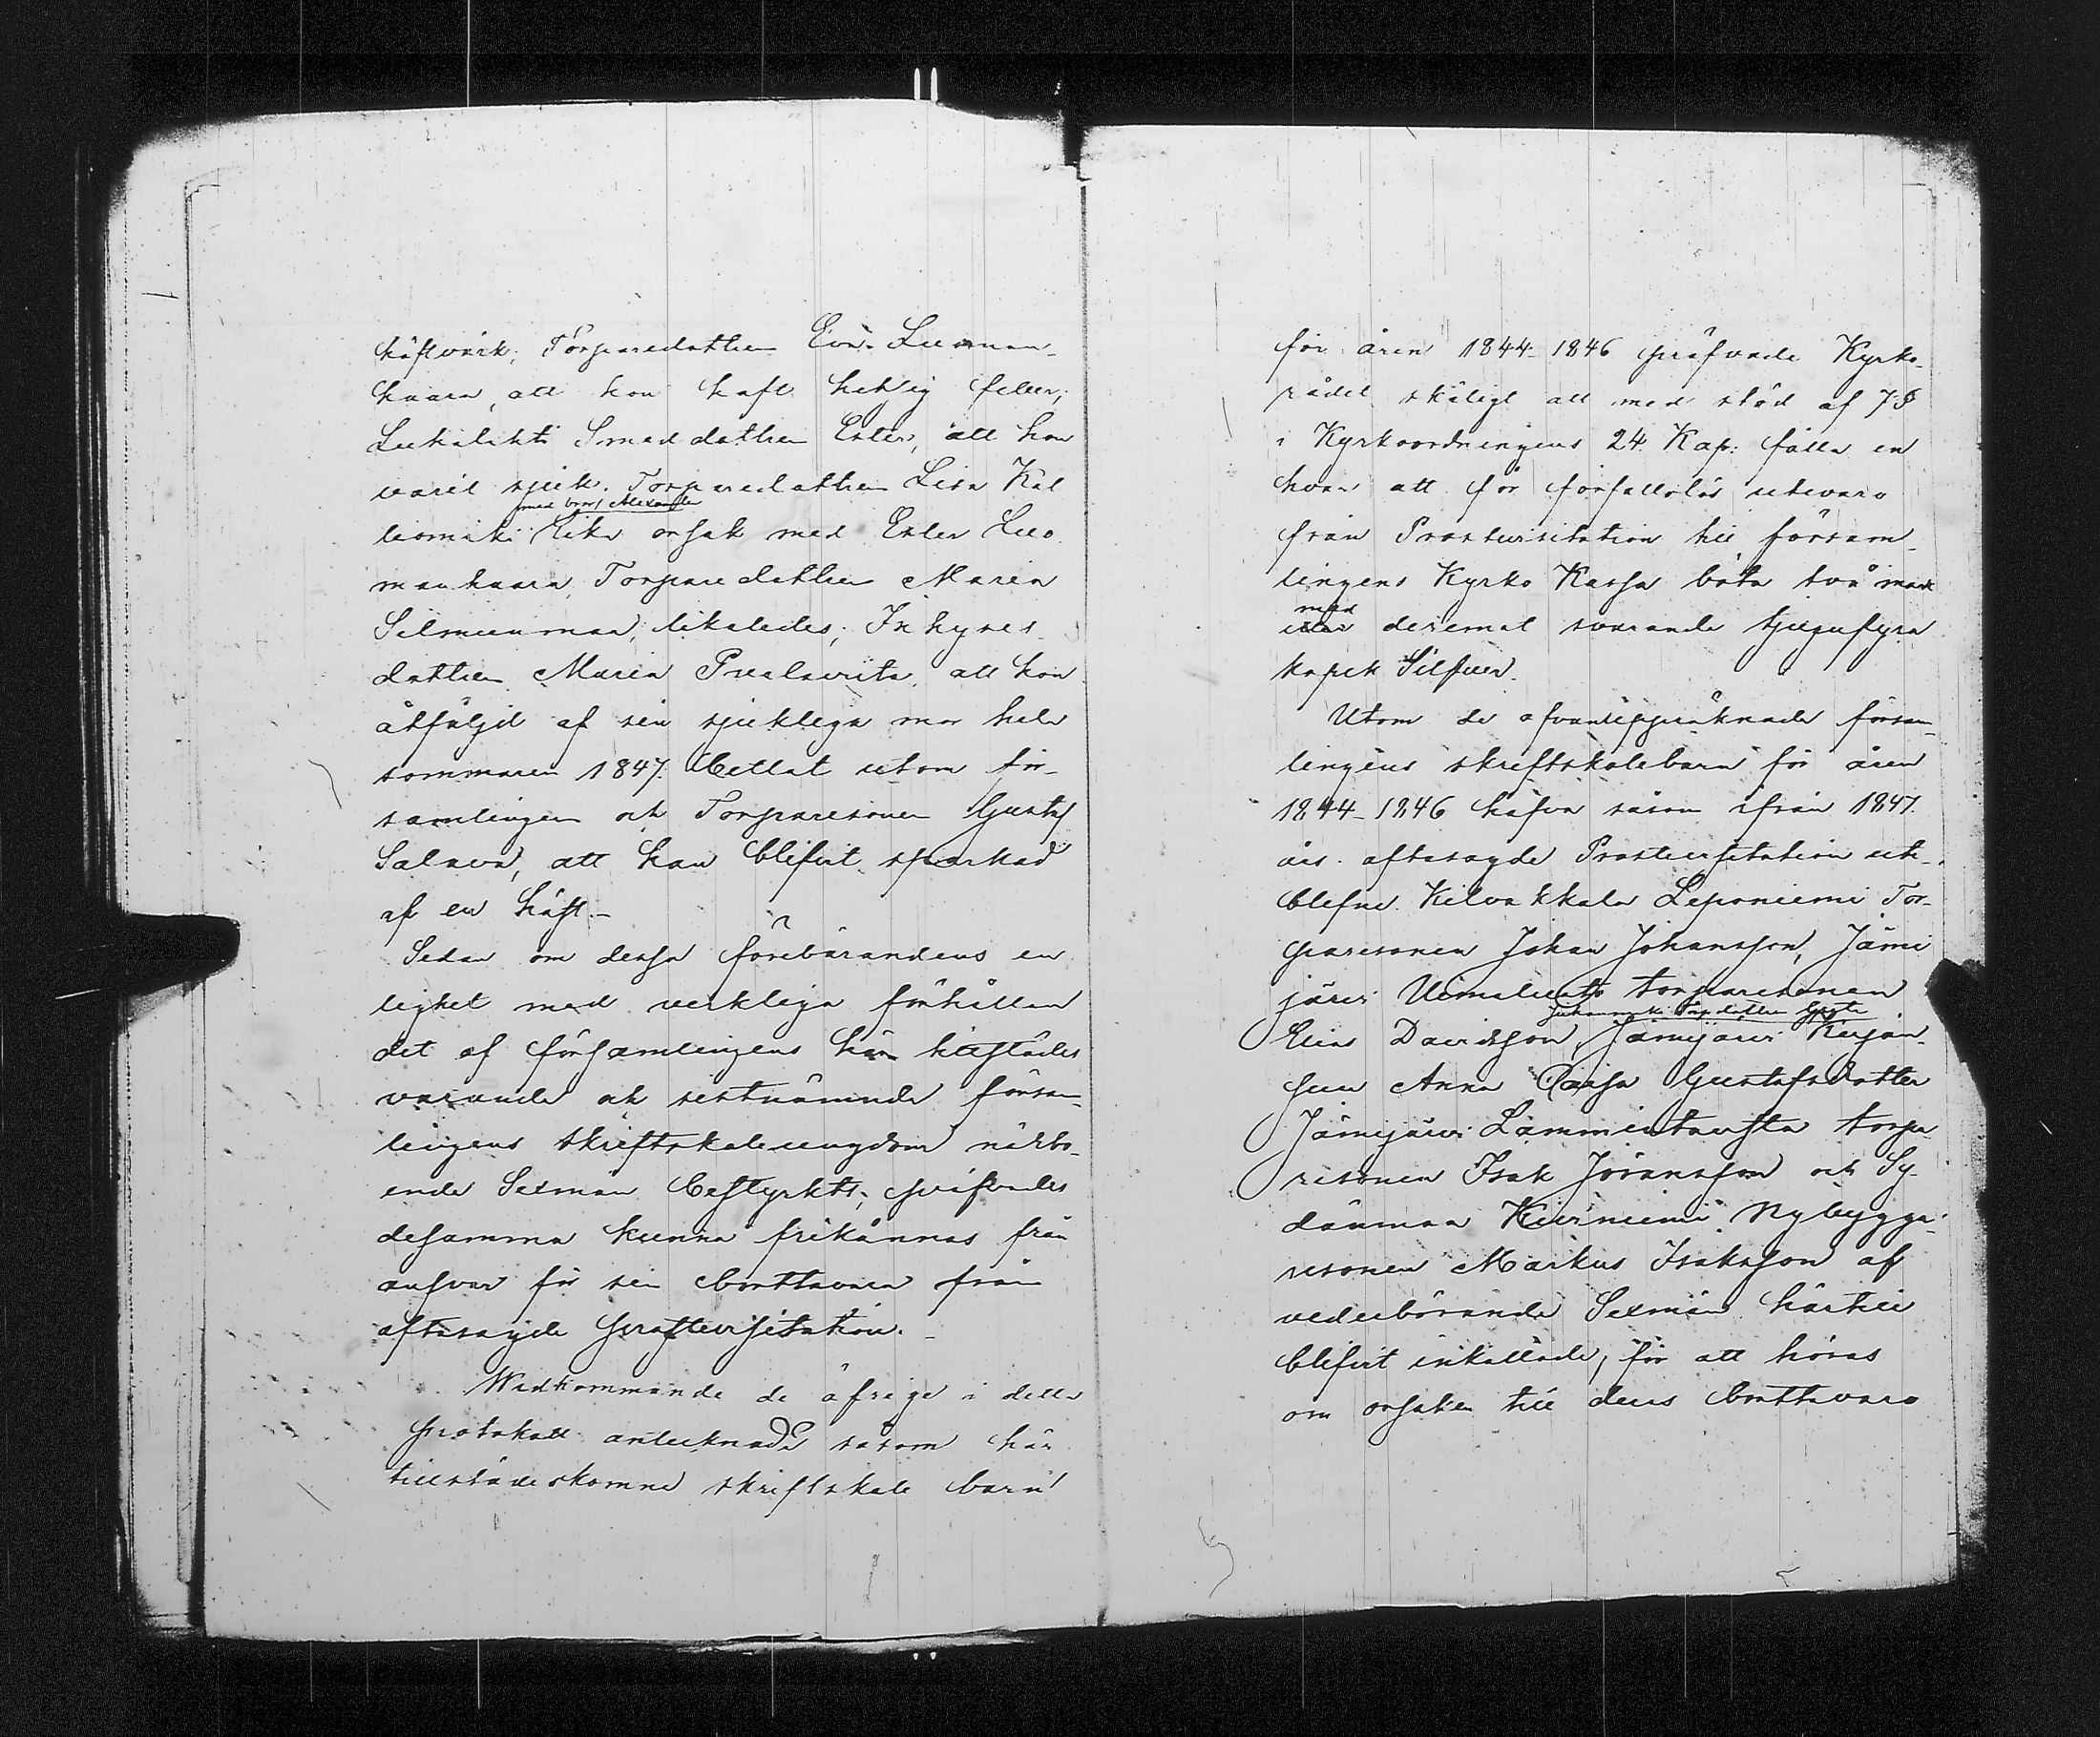 håftvärk; Torparedottren Eva Luoman-
haara, att hon haft hetsig feber;
Luhalahti Smeddottren Ester, att hon
varit sjuk. Torparedottren Lisa Kal
med bror Alexander
liomäki lika orsak med Ester Luo
manhaara, Torparedottren Maria
Silmunmaa, likaledes; Inhyses
dottren Maria Pualavirta, att hon
åtföljd af sin sjukliga mor hela
sommaren 1847 bettlat utom för-
samlingen och Torparesonen Gustaf
Salava, att han blifvit sparkad
af en häst.-
Sedan om dessa förebärandens en
lighet med verkliga förhållan
det af församlingens här tillstädes
varande och sistnämnde försam-
lingens skriftskoleungdom närbo-
ende Sexmän bestyrkts; pröfvades
desamma kunna frikännas från
ansvar för sin borttavaro från
oftasagde prostevisitation.-
Widkommande de öfrige i detta
protokoll antecknade såsom här
tillstädeskomne skriftskole barn
för åren 1844-1846 pröfvade Kyrko-
rådet skäligt att med stöd af 7 §
i Kyrkoordningens 24 Kap: fälla en
hvar att för förfallolös utevaro
från Prostvisitation till försam-
lingens Kyrko Kassa böta två mark
med
deremot svarande tjugufyra
kopek Silfver.
Utom de ofvanuppräknade försam-
lingens skriftskolebarn för åren
1844-1846 hafva såsom ifrån 1847
års oftasagde Prostevisitation ute-
blefne Kilvakkala Leponiemi Tor-
paresonen Johan Johansson, Jämi
järvi torparesonen
Elias Davidsson, Jämijärvi
Anna Caisa Gustafsdotter
Jämijärvi Lamminstausta torpa
resonen Isak Jöransson och Sy-
dänmaa Kivniemi Nybygga-
resonen Markus Isaksson af
vederbörande Sexmän härtill
blifvit inkallade, för att höras
om orsaken till deras borttavaro